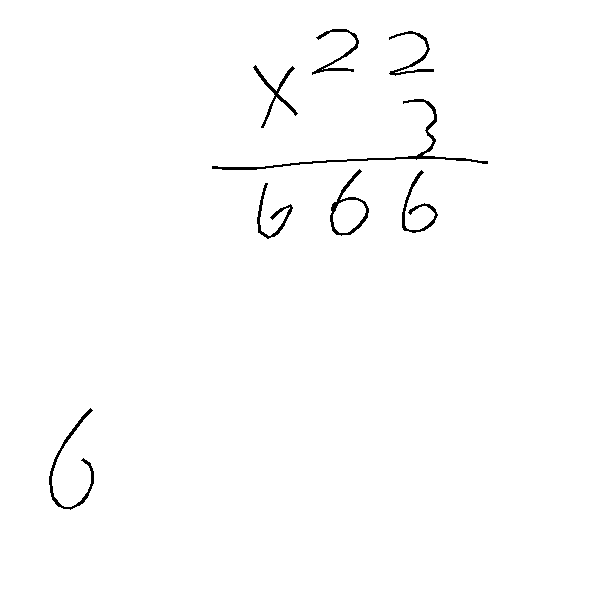 22
× 3
666
6